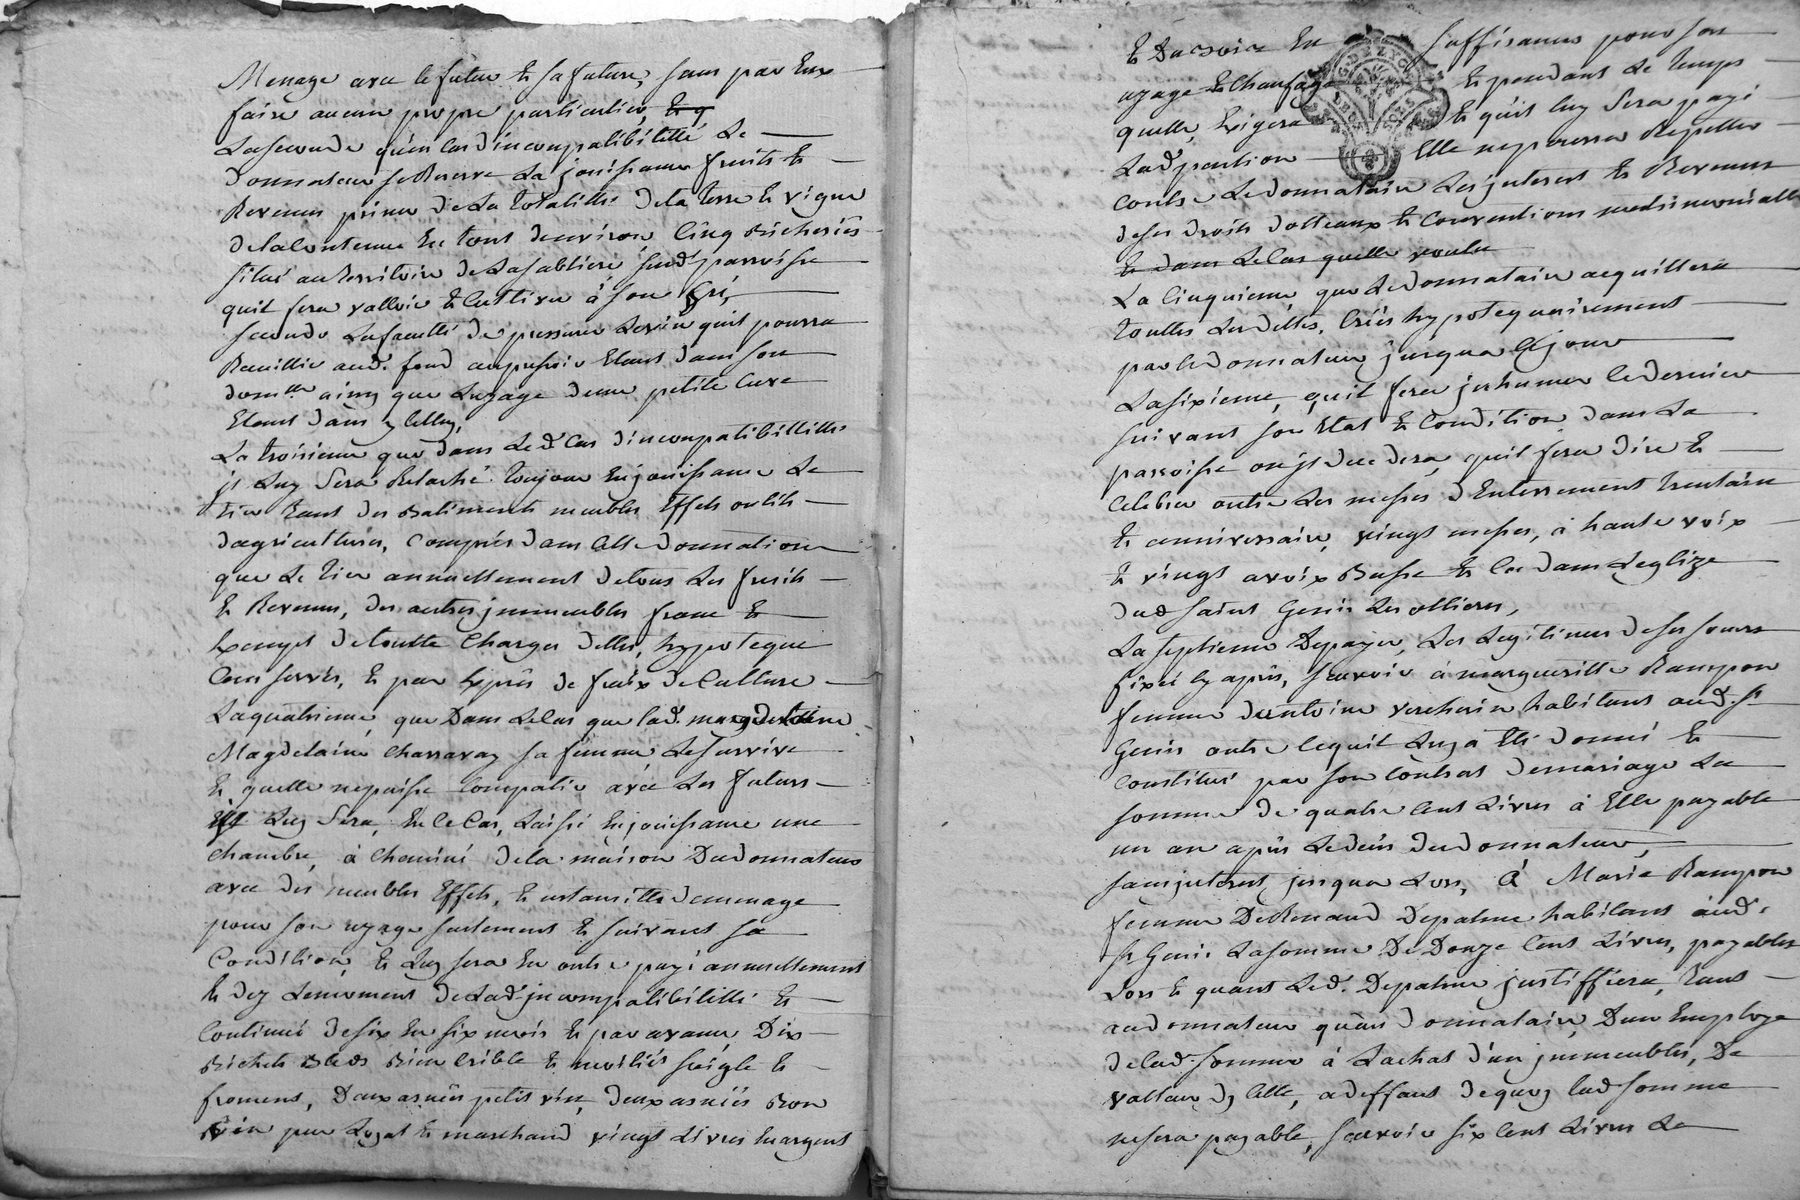 Menage avec le futur & sa future, sans par Eux
faire aucun propre particulier, & q
La seconde qu'en cas d'incompatibilitté Le
donnateur se Reserve La jouissance fruits &
Revenus prime de La totallitté de la terre & vigne
de la contenue En tout d'environ Cinq Bicherées
situé au territoire de La sabliere, susd. parroisse
quil fera valloir & Cultiver à son Gré,
seconde La faculté de pressurer Le vin quil pourra
Recuillir aud. fond au pressoir Etant dans son
dom.lle ainsy que Luzage d'une petite Cuve
Etant dans ycelluy,
La troisieme que dans Led. Cas d'incompatibillitté
jl Luy sera Relaché toujour En jouissance Le
tier tant des Batiments meubles Effets outils
d'agriculture, Compris dans cette donnation
que Le tier annuellement de tous Les fruits
& Revenus, des autres jmmeubles franc &
Exempt de toutte Charges dettes, hypoteque
Cens servis, & par Exprès de fraix de Culture
La quatrieme, que Dans Le Cas que lad.
Magdelaine Charravay sa femme Le survive
& quelle ne puisse Compatir avec Les futurs
Luy sera, En Ce Cas, Laissé En jouissance une
chambre, à Cheminé de la maison Du donnateur
avec des meubles Effets, & ustansilles de menage
pour son uzage seulement & suivant sa
Condition, & Luy sera En outre payé annuellement
& dez Lemoment de Lad. jncompatibilitté &
Continué de six En six mois & par avance, Dix
Bichets Bleds Bien Crible & moitiés seigle &
froment, Deux asnées petit vin, deux asnées Bon
vin pur Loyal & marchand vingt Livres En argent
& Du Bois En suffisance pour son
uzage & Chaufage & pendant Le temps
quelle, Exigera & quil luy sera payé
Lad. pention Elle ne pourra Repetter
Contre Le donnataire Les jnterest & Revenus
de ses droits dotteaux & Conventions matrimonialle
& dans Le Cas quelle voulu
La Cinquieme, que Le donnataire acquittera
touttes Les dettes, Créés hypotequairement
par Le donnateur jusqua Ce jour
La sixieme, quil fera jnhumer Ce dernier
suivant son Etat & Condition dans La
parroisse ou jl decedera, quil fera dire &
Celebrer outre Les messes d'Enterrement trentaine
& anniversaire, vingt messes, à haute voix
& vingt a voix Basse & Ce dans Leglize
dud. saint Genis Les ollieres,
La septieme De payer, Les Legitimes de ses sœurs
fixée Cy après, sçavoir à margueritte Rampon
femme d'antoine vercherin habitant aud. st
Genis outre Ce quil Luy a Eté donné &
Constitué par son Contrat de mariage La
somme de quatre Cent Livres à Elle payable
un an après Le deces du donnateur,
sans jnterest, jusqua Lors, à Marie Rampon
femme De Renaud Depalme habitant aud.
st Genis La somme De Douze Cent Livres, payables
Lors & quant Led. Depalme justiffiera, tant
au donnateur qu'au donnataire, D'un Employe
de lad. somme à L'achat d'un jmmeubles, De
valleur dy Celle, a deffaut de quoy lad. somme
ne sera payable, sçavoir six Cent Livres Le